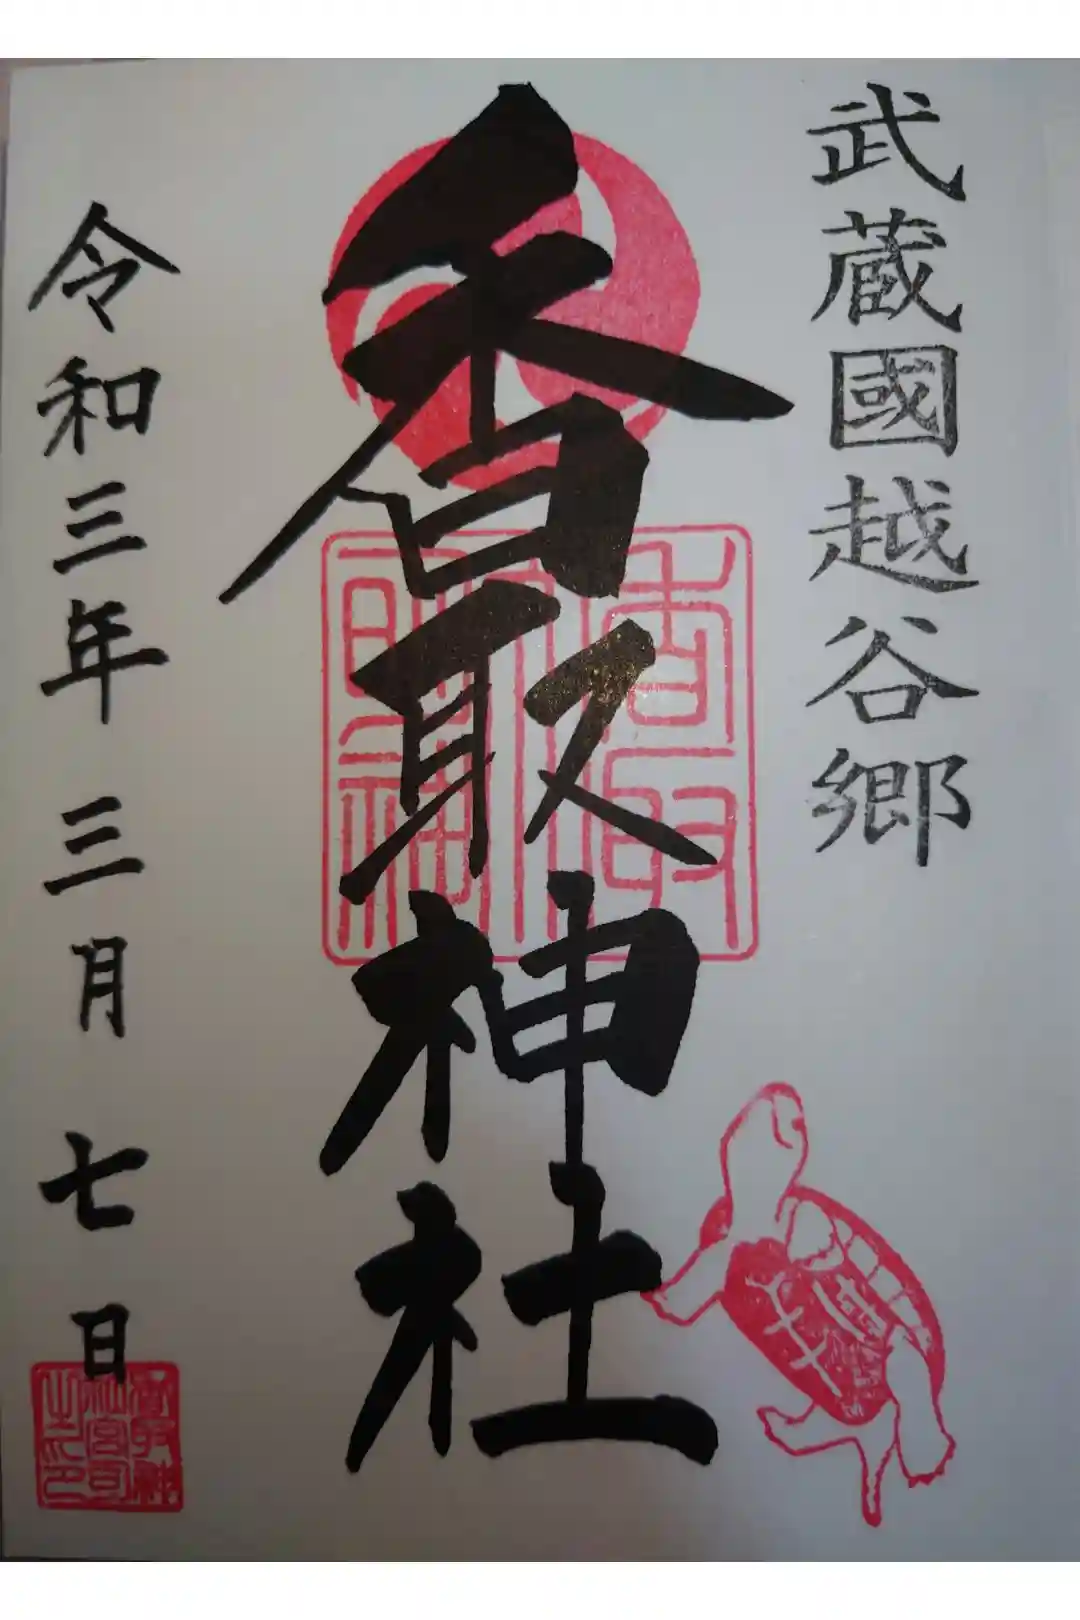 武蔵國越谷郷
香取神社
令和三年 三月 七日